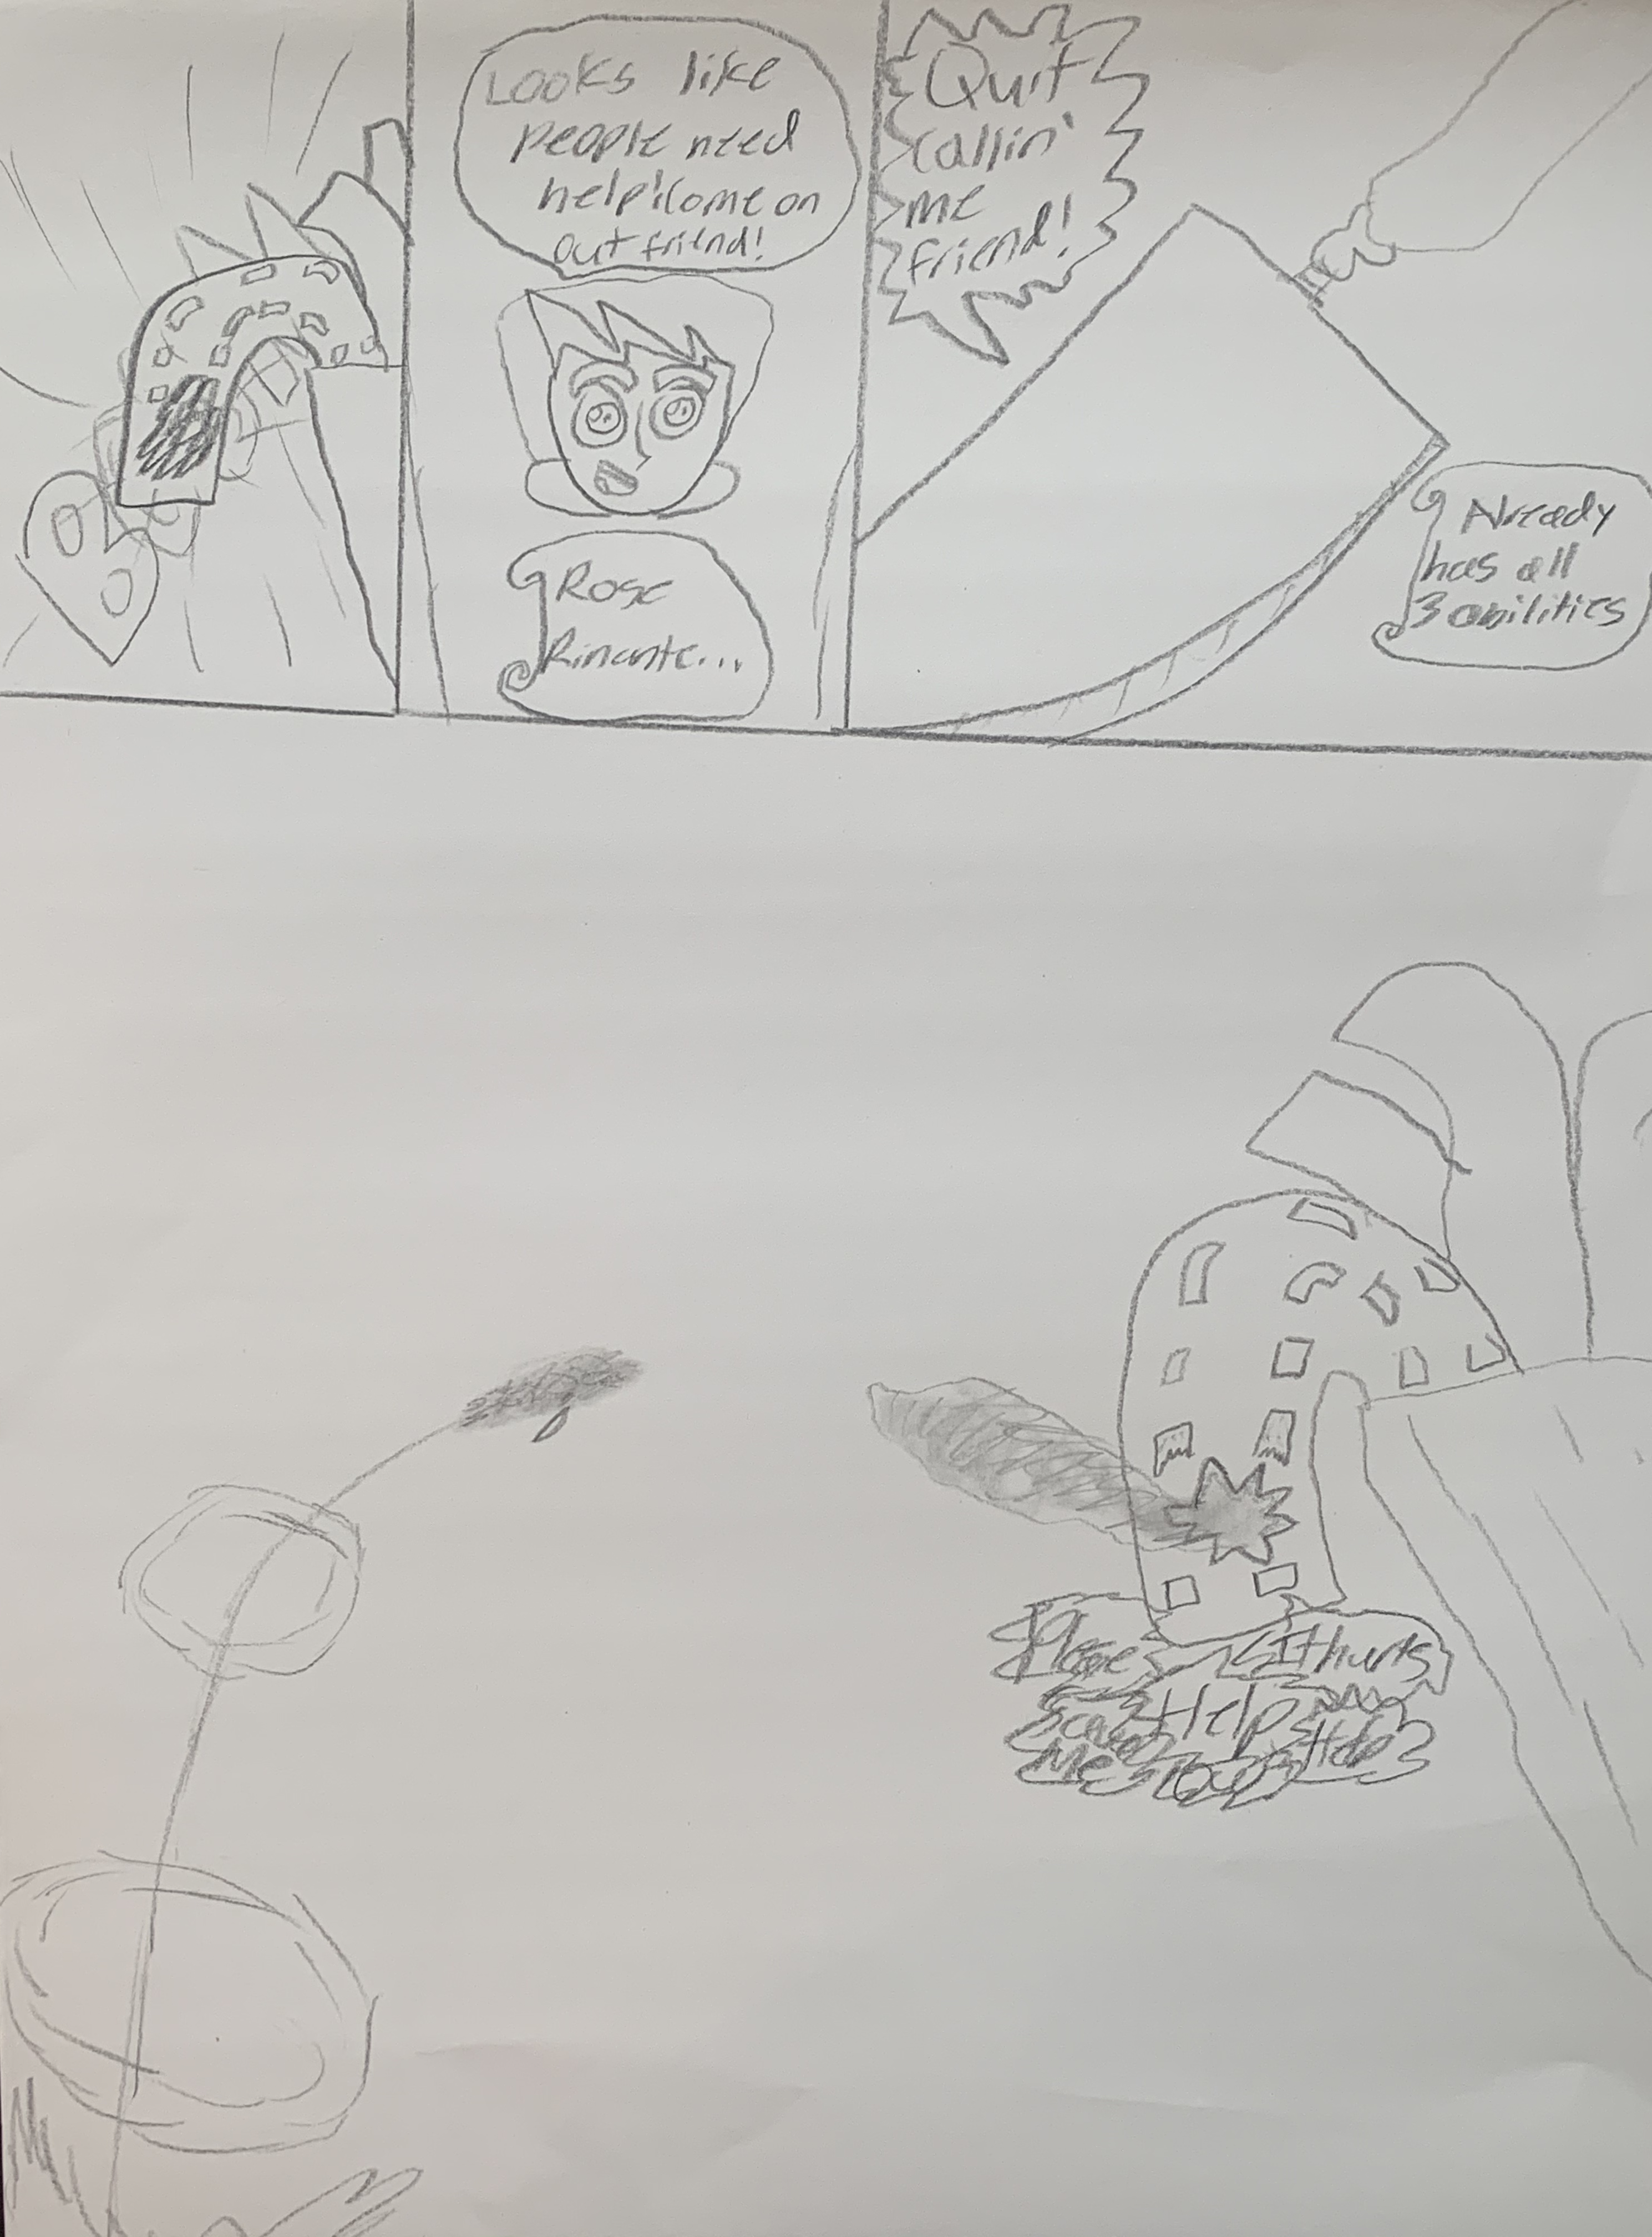 Looks like
people need
help! Come on
out friend!
Rose
Rinante...
Quit
callin'
me
friend!
Already
has all
3 abilities
Please
It hurts
Help
Help
me